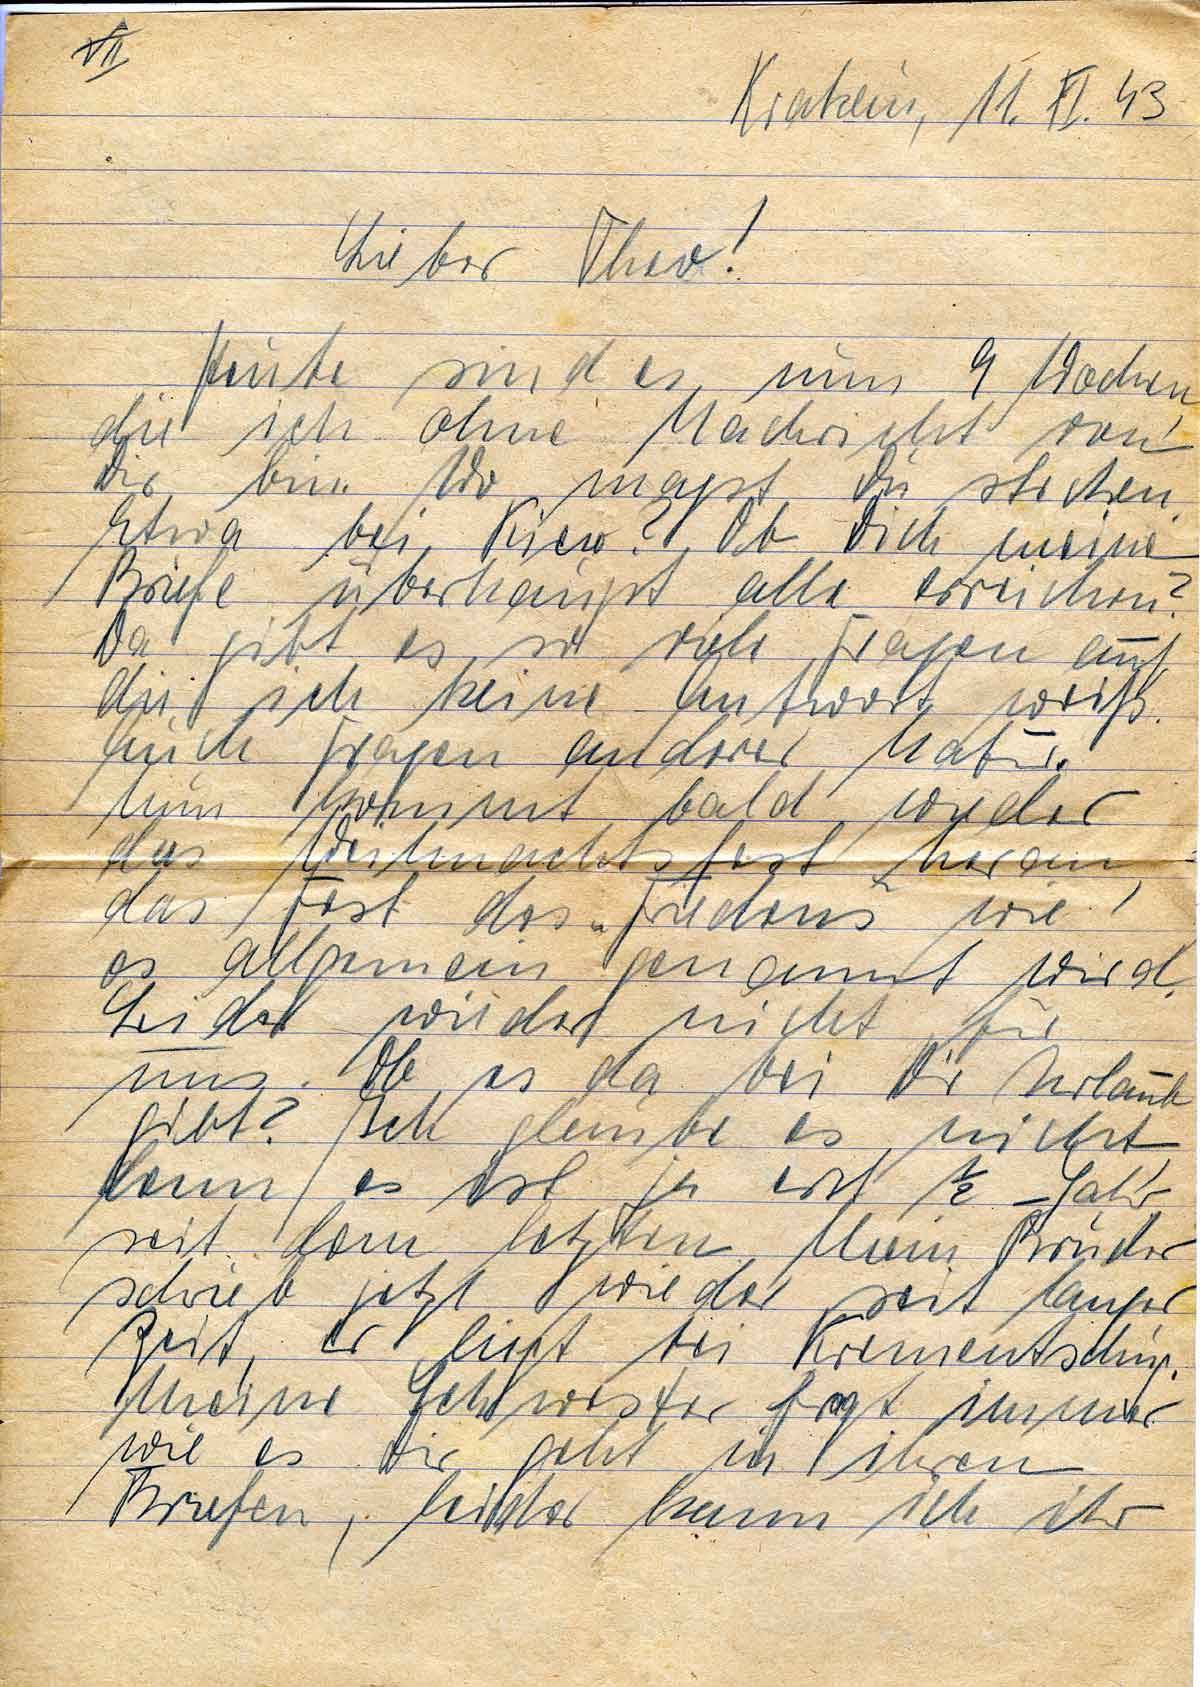 VII
Krakau, 11. XI. 43
Lieber Theo!
Heute sind es nun 9 Wochen,
die ich ohne Nachricht von
Dir bin. Wo magst Du stecken.
Etwa bei Kiew? Ob Dich meine
Briefe überhaupt alle erreichen?
Da gibt es so viele Fragen auf
die ich keine Antwort weiß.
Auch Fragen anderer Natur.
Nun kommt bald wieder
das Weihnachtsfest heran,
das Fest des „Friedens" wie
es allgemein genannt wird.
Leider wieder nicht für
uns. Ob es da bei Dir Urlaub
gibt? Ich glaube es nicht
denn es ist ja erst ½ Jahr
seit dem letzten. Mein Bruder
schrieb jetzt wieder seit langer
Zeit, er liegt bei Krementschug.
Meine Schwester fragt immer
wie es Dir geht in ihren
Briefen, leider kann ich ihr